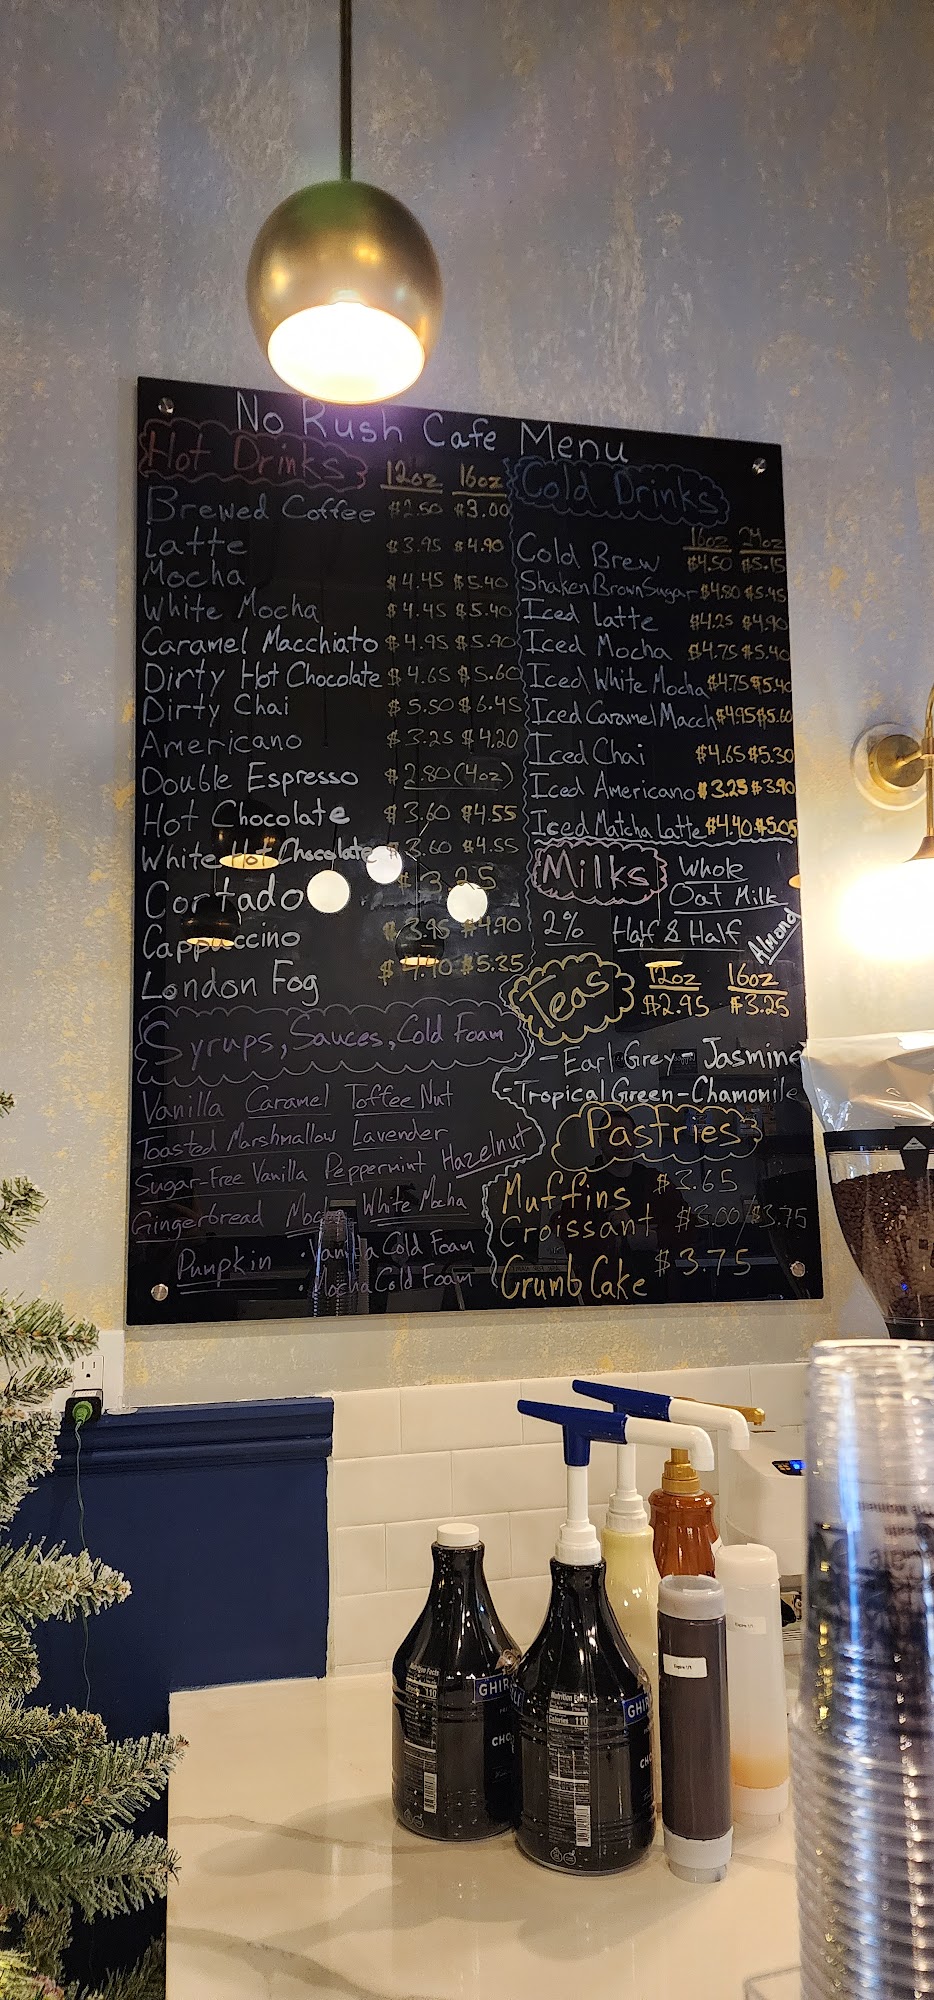 No Rush Cafe Menu
Hot Drinks 12oz 16oz
Brewed Coffee $2.50 $3.00
Latte $3.95 $4.90
Mocha $4.45 $5.40
White Mocha $4.45 $5.40
Caramel Macchiato $4.95 $5.90
Dirty Hot Chocolate $4.65 $5.60
Dirty Chai $5.50 $6.45
Americano $3.25 $4.20
Double Espresso $2.80 (4oz)
Hot Chocolate $3.60 $4.55
White Hot Chocolate $3.60 $4.55
Cortado $3.25
Cappuccino $3.95 $4.90
London Fog $4.40 $5.35
Syrups, Sauces, Cold Foam
Vanilla Caramel Toffee Nut
Toasted Marshmallow Lavender
Sugar-Free Vanilla Peppermint Hazelnut
Gingerbread Mocha White Mocha
Pumpkin
• Vanilla Cold Foam
• Mocha Cold Foam
Cold Drinks
16oz 24oz
Cold Brew $4.50 $5.15
Shaken Brown Sugar $4.80 $5.45
Iced Latte $4.25 $4.90
Iced Mocha $4.75 $5.40
Iced White Mocha $4.75 $5.40
Iced Caramel Macch $4.95 $5.60
Iced Chai $4.65 $5.30
Iced Americano $3.25 $3.90
Iced Matcha Latte $4.40 $5.05
Milks Whole
Oat Milk
2% Half & Half Almond
Teas 12oz 16oz
$2.95 $3.25
- Earl Grey - Jasmine
- Tropical Green - Chamomile
Pastries
Muffins $3.65
Croissant $3.00/$3.75
Crumb Cake $3.75
Nutrition Facts
110
GHIR
Nutrition Facts
Calories 110
GHIR